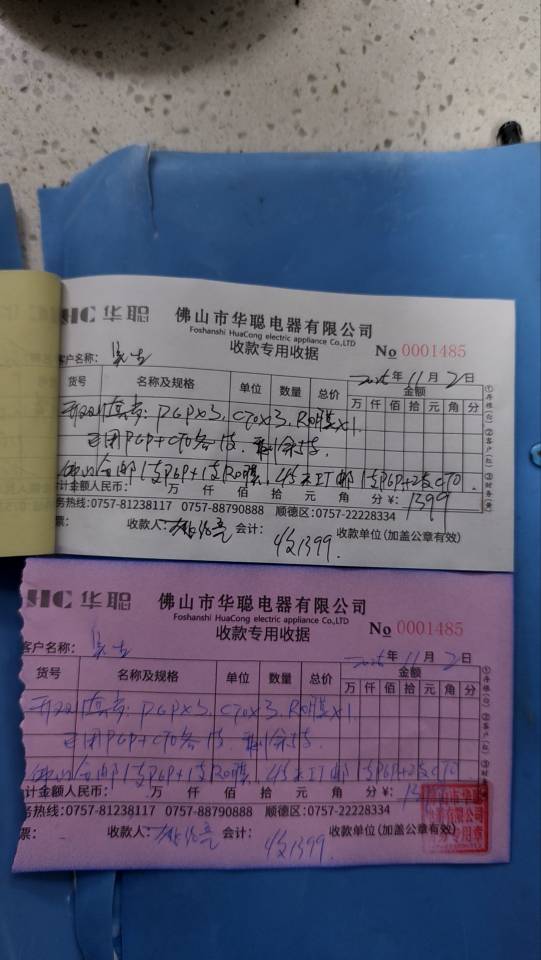 HC 华聪 佛山市华聪电器有限公司
Foshanshi HuaCong electric appliance Co.,LTD
收款专用收据 No 0001485
客户名称：
年 11 月 2 日
货号 名称及规格 单位 数量 总价 金额
万 仟 佰 拾 元 角 分
PGP×3, CTO×3, RO膜×1
PGP+CTO各1支, 剩余5支.
1支PGP+1支RO膜, 1支PGP+2支CTO.
计金额人民币： 万 仟 佰 拾 元 角 分 ¥: 1399
务热线:0757-81238117 0757-88790888 顺德区:0757-22228334
票: 收款人: 会计: 收款单位(加盖公章有效)
收1399.
HC 华聪 佛山市华聪电器有限公司
Foshanshi HuaCong electric appliance Co.,LTD
收款专用收据 No 0001485
客户名称：
年 11 月 2 日
货号 名称及规格 单位 数量 总价 金额
万 仟 佰 拾 元 角 分
PGP×3, CTO×3, RO膜×1
PGP+CTO各1支, 剩余5支.
1支PGP+1支RO膜, 1支PGP+2支CTO
计金额人民币： 万 仟 佰 拾 元 角 分 ¥:
务热线:0757-81238117 0757-88790888 顺德区:0757-22228334
票: 收款人: 会计: 收款单位(加盖公章有效)
收1399.